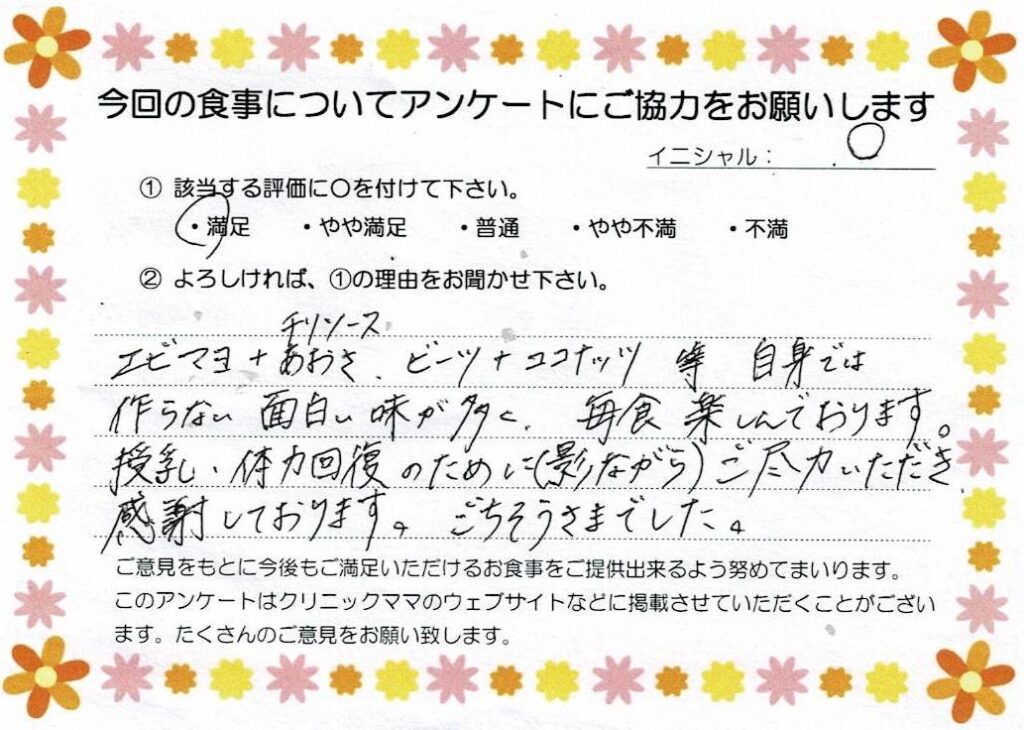 今回の食事についてアンケートにご協力をお願いします
イニシャル： . O
① 該当する評価に〇を付けて下さい。
・満足 ・やや満足 ・普通 ・やや不満 ・不満
② よろしければ、①の理由をお聞かせ下さい。
チリソース
エビマヨ+あおさ、ビーツ+ココナッツ 等 自身では
作らない 面白い味が多く、毎食 楽しんでおります。
授乳・体力回復のために(影ながら)ご尽力いただき
感謝しております。ごちそうさまでした。
ご意見をもとに今後もご満足いただけるお食事をご提供出来るよう努めてまいります。
このアンケートはクリニックママのウェブサイトなどに掲載させていただくことがござい
ます。たくさんのご意見をお願い致します。